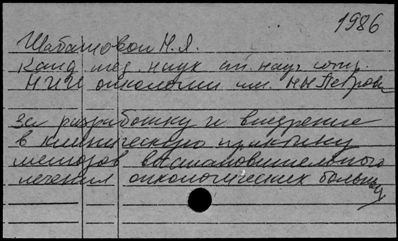 1986
Шабашовой Н.Я.
Канд. мед. наук ст. науч. сотр.
НИИ онкологии им. Н.Н. Петрова
за разработку и внедрение
в клиническую практику
методов восстановительного
лечения онкологических больных